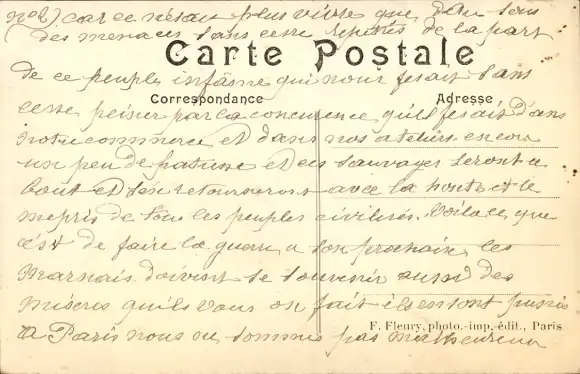 (no 2) car ce n'etait plus vivre que dans tous
(des menaces sans cesse repetes de la part
Carte Postale
de ce peuple infâme qui nous fesait sans
Correspondance Adresse
cesse par la concurence qu'il fesait dans
notre commerce et dans nos ateliers encore
un peu de patience et ces sauvages seront a
bout et s'en retourneront avec la honte et le
mepris de tous les peuples civilisés. Voila ce que
c'est de faire la guerre a son prochain les
Marnais doivent se souvenir aussi des
miseres qu'ils vous on fait ils en sont punis
A Paris nous ne sommes pas malheureux
F. Fleury, photo.-imp.-édit., Paris